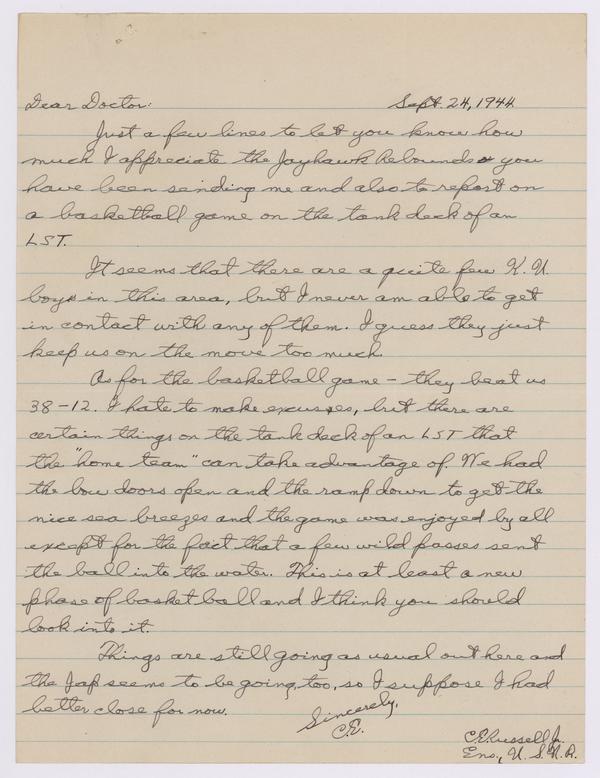 Dear Doctor: Sept. 24, 1944
Just a few lines to let you know how
much I appreciate the Jayhawk Rebounds you
have been sending me and also to report on
a basketball game on the tank deck of an
LST.
It seems that there are a quite few K.U.
boys in this area, but I never am able to get
in contact with any of them. I guess they just
keep us on the move too much.
As for the basketball game – they beat us
38–12. I hate to make excuses, but there are
certain things on the tank deck of an LST that
the "home team" can take advantage of. We had
the bow doors open and the ramp down to get the
nice sea breezes and the game was enjoyed by all
except for the fact that a few wild passes sent
the ball into the water. This is at least a new
phase of basketball and I think you should
look into it.
Things are still going as usual out here and
the Jap seems to be going, too, so I suppose I had
better close for now.
Sincerely,
C.E.
C.E. Russell Jr.
Ens., U.S.N.R.